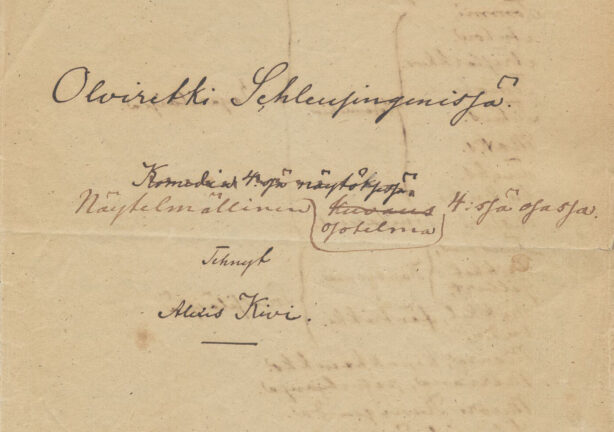 Olviretki Schleusingenissä.
Komedia 4:ssä näytöksessä
Näytelmällinen kuvaus 4:ssä osassa.
osotelma
Tehnyt
Alexis Kivi.